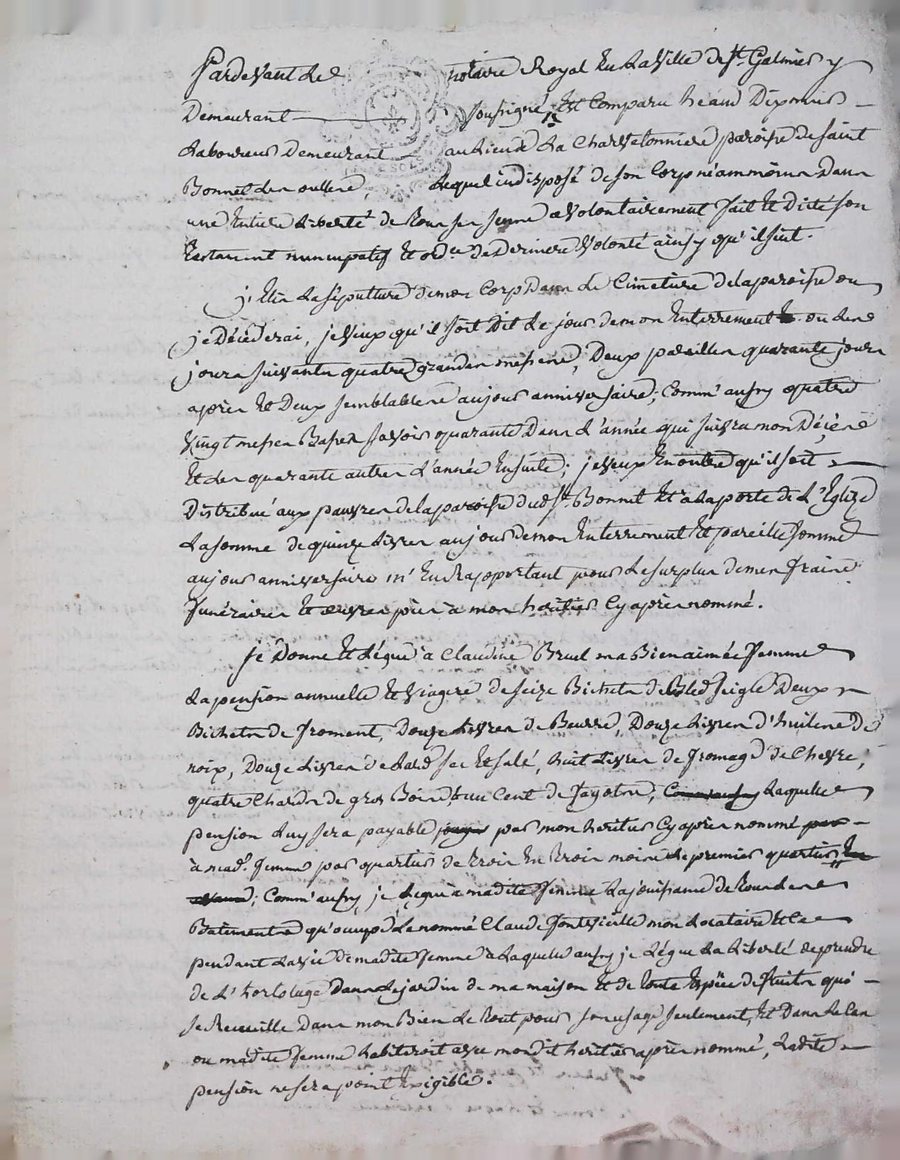 Pardevant Le notaire Royal En La Ville de St. Galmier y
Demeurant soussigné, Est Comparu Jean Dixmier
Laboureur Demeurant au Lieu de La Charvetonniere paroisse de saint
Bonnet Les oulles, Lequel indisposé de son Corp néammoins Dans
une Entiere Liberté de tous ses sens a volontairement fait Et Dicté son
testament nuncupatif Et ordre de Derniere volonté ainsy qu'il suit.
j'Elis La sépulture de mon Corp Dans Le Cimetiere de la paroisse ou
je Décéderai, je veux qu'il soit Dit Le jour de mon Enterrement ou Les
jours suivants quatre grandes messes, Deux pareilles quarante jours
après Et Deux semblables au jour anniversaire; Comm' aussy quatre
vingt messes Basses savoir quarante Dans L'année qui suivra mon Décès
Et Les quarante autres L'année Ensuite; je veux En outre qu'il soit
Distribué aux pauvres de la paroisse dud. St. Bonnet Et a La porte de L'Eglize
La somme de quinze Livres au jour de mon Enterrement Et pareille somme
au jour anniversaire m'En Rapportant pour Le surplus de mes fraix
funéraires Et œuvres pies à mon heritier Cy après nommé.
Je Donne Et Lègue à Claudine Bruel ma Bien aimée femme
La pension annuelle Et viagere de seize Bichets de Bled seigle Deux
Bichets de froment, Douze Livres de Beurre, Douze Livres d'huile de
noix, Douze Livres de Lard sec Et salé, huit Livres de fromage de Chevre,
quatre Chards de gros Bois Et un Cent de fagots, Comm'aussy Laquelle
pension Luy sera payable par mon heritier Cy après nommé
à mad. femme par quartier de trois En trois mois Le premier quartier
; Comm' aussy, je Lègue à madite femme La jouissance de tous Les
Batiments qu'occupe Le nommé Claude fontvieille mon Locataire Et Ce
pendant La vie de madite femme à Laquelle aussy je Lègue La Liberté de prendre
de L'hortolage Dans Le jardin de ma maison Et de toute Espèce de fruits qui
se Recueille Dans mon Bien Le tout pour son usage seulement, Et Dans Le Cas
ou madite femme habiteroit avec mondit heritier après nommé, Ladite
pension ne sera point Exigible.